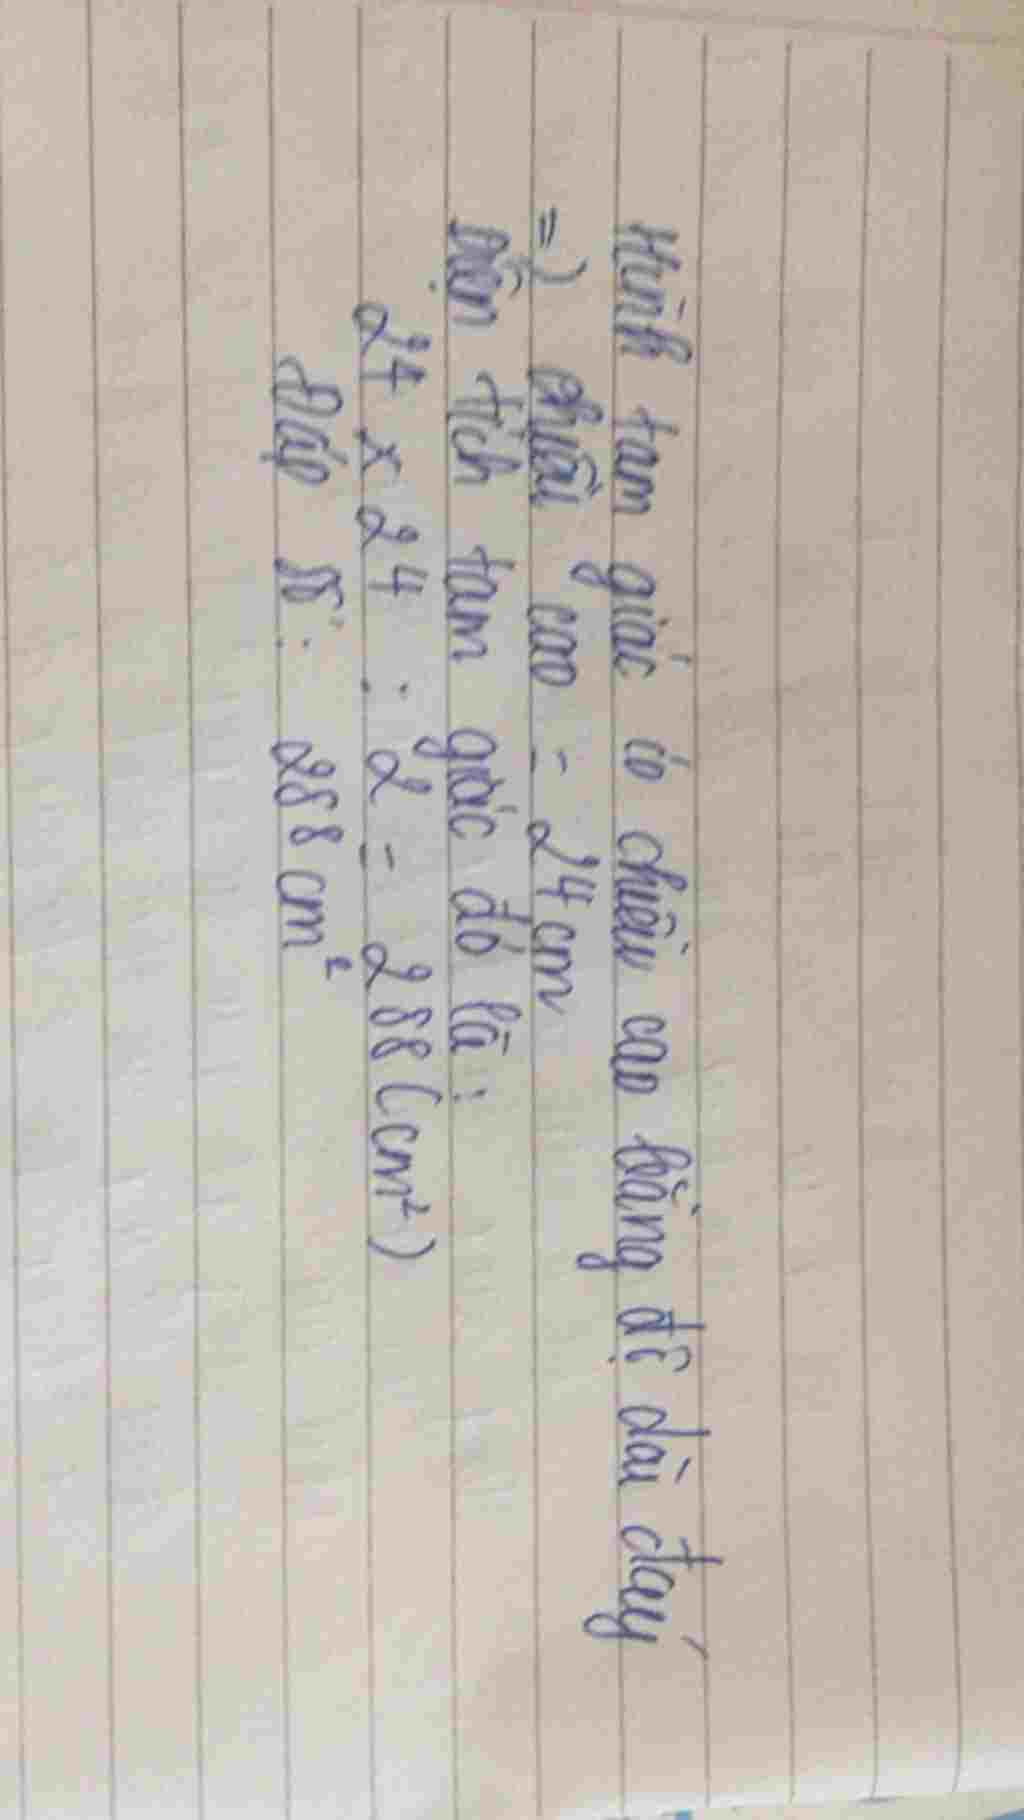 Hình tam giác có chiều cao bằng độ dài đáy
=) chiều cao = 24cm
Diện tích tam giác đó là :
24 x 24 : 2 = 288 (cm²)
Đáp số : 288 cm²